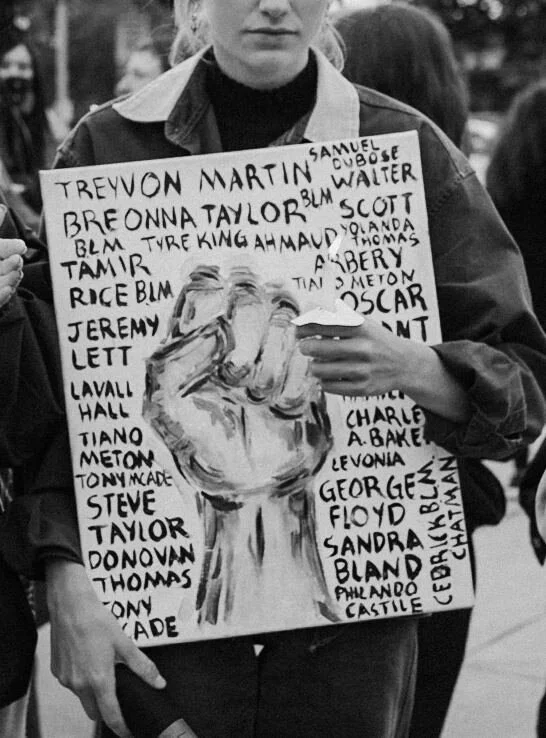 TREYVON MARTIN
SAMUEL
DUBOSE
BREONNA TAYLOR BLM
WALTER
SCOTT
BLM TYRE KING AHMAUD
YOLANDA
THOMAS
TAMIR
ARBERY
RICE BLM
TIANO METON
OSCAR
JEREMY
LETT
LAVALL
HALL
CHARLE
A. BAKE
TIANO
METON
LEVONIA
TONY MCADE
GEORGE
STEVE
FLOYD
TAYLOR
SANDRA
DONOVAN
BLAND
THOMAS
PHILANDO
CASTILE
CEDRICK BLM
CHATMAN